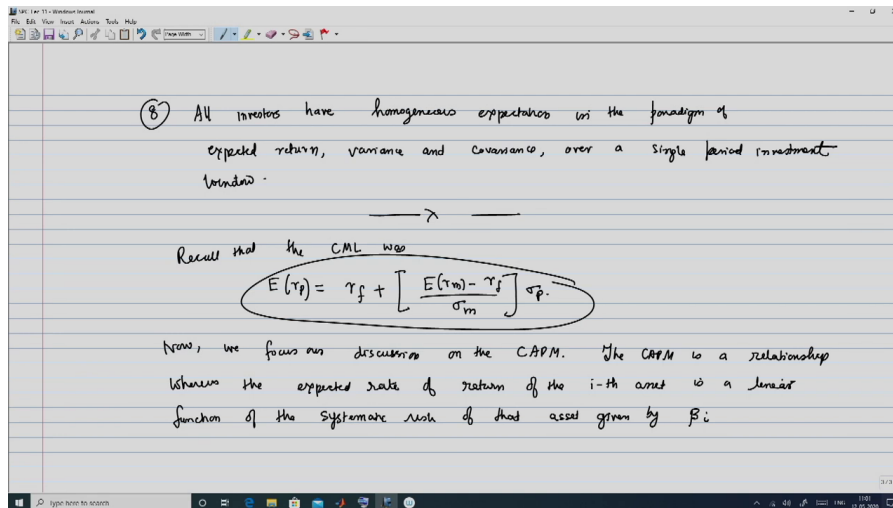 SPC Lec 11 - Windows Journal
File Edit View Insert Actions Tools Help
Page Width
⑧ All investors have homogeneous expectations in the paradigm of
expected return, variance and covariance, over a single period investment
window.
Recall that the CML was
E(r_p) = r_f + [ (E(r_m) - r_f) / σ_m ] σ_p.
Now, we focus our discussion on the CAPM. The CAPM is a relationship
whereus the expected rate of return of the i-th asset is a linear
function of the systematic risk of that asset given by β_i
3/3
Type here to search
ENG
11:01
12-05-2020